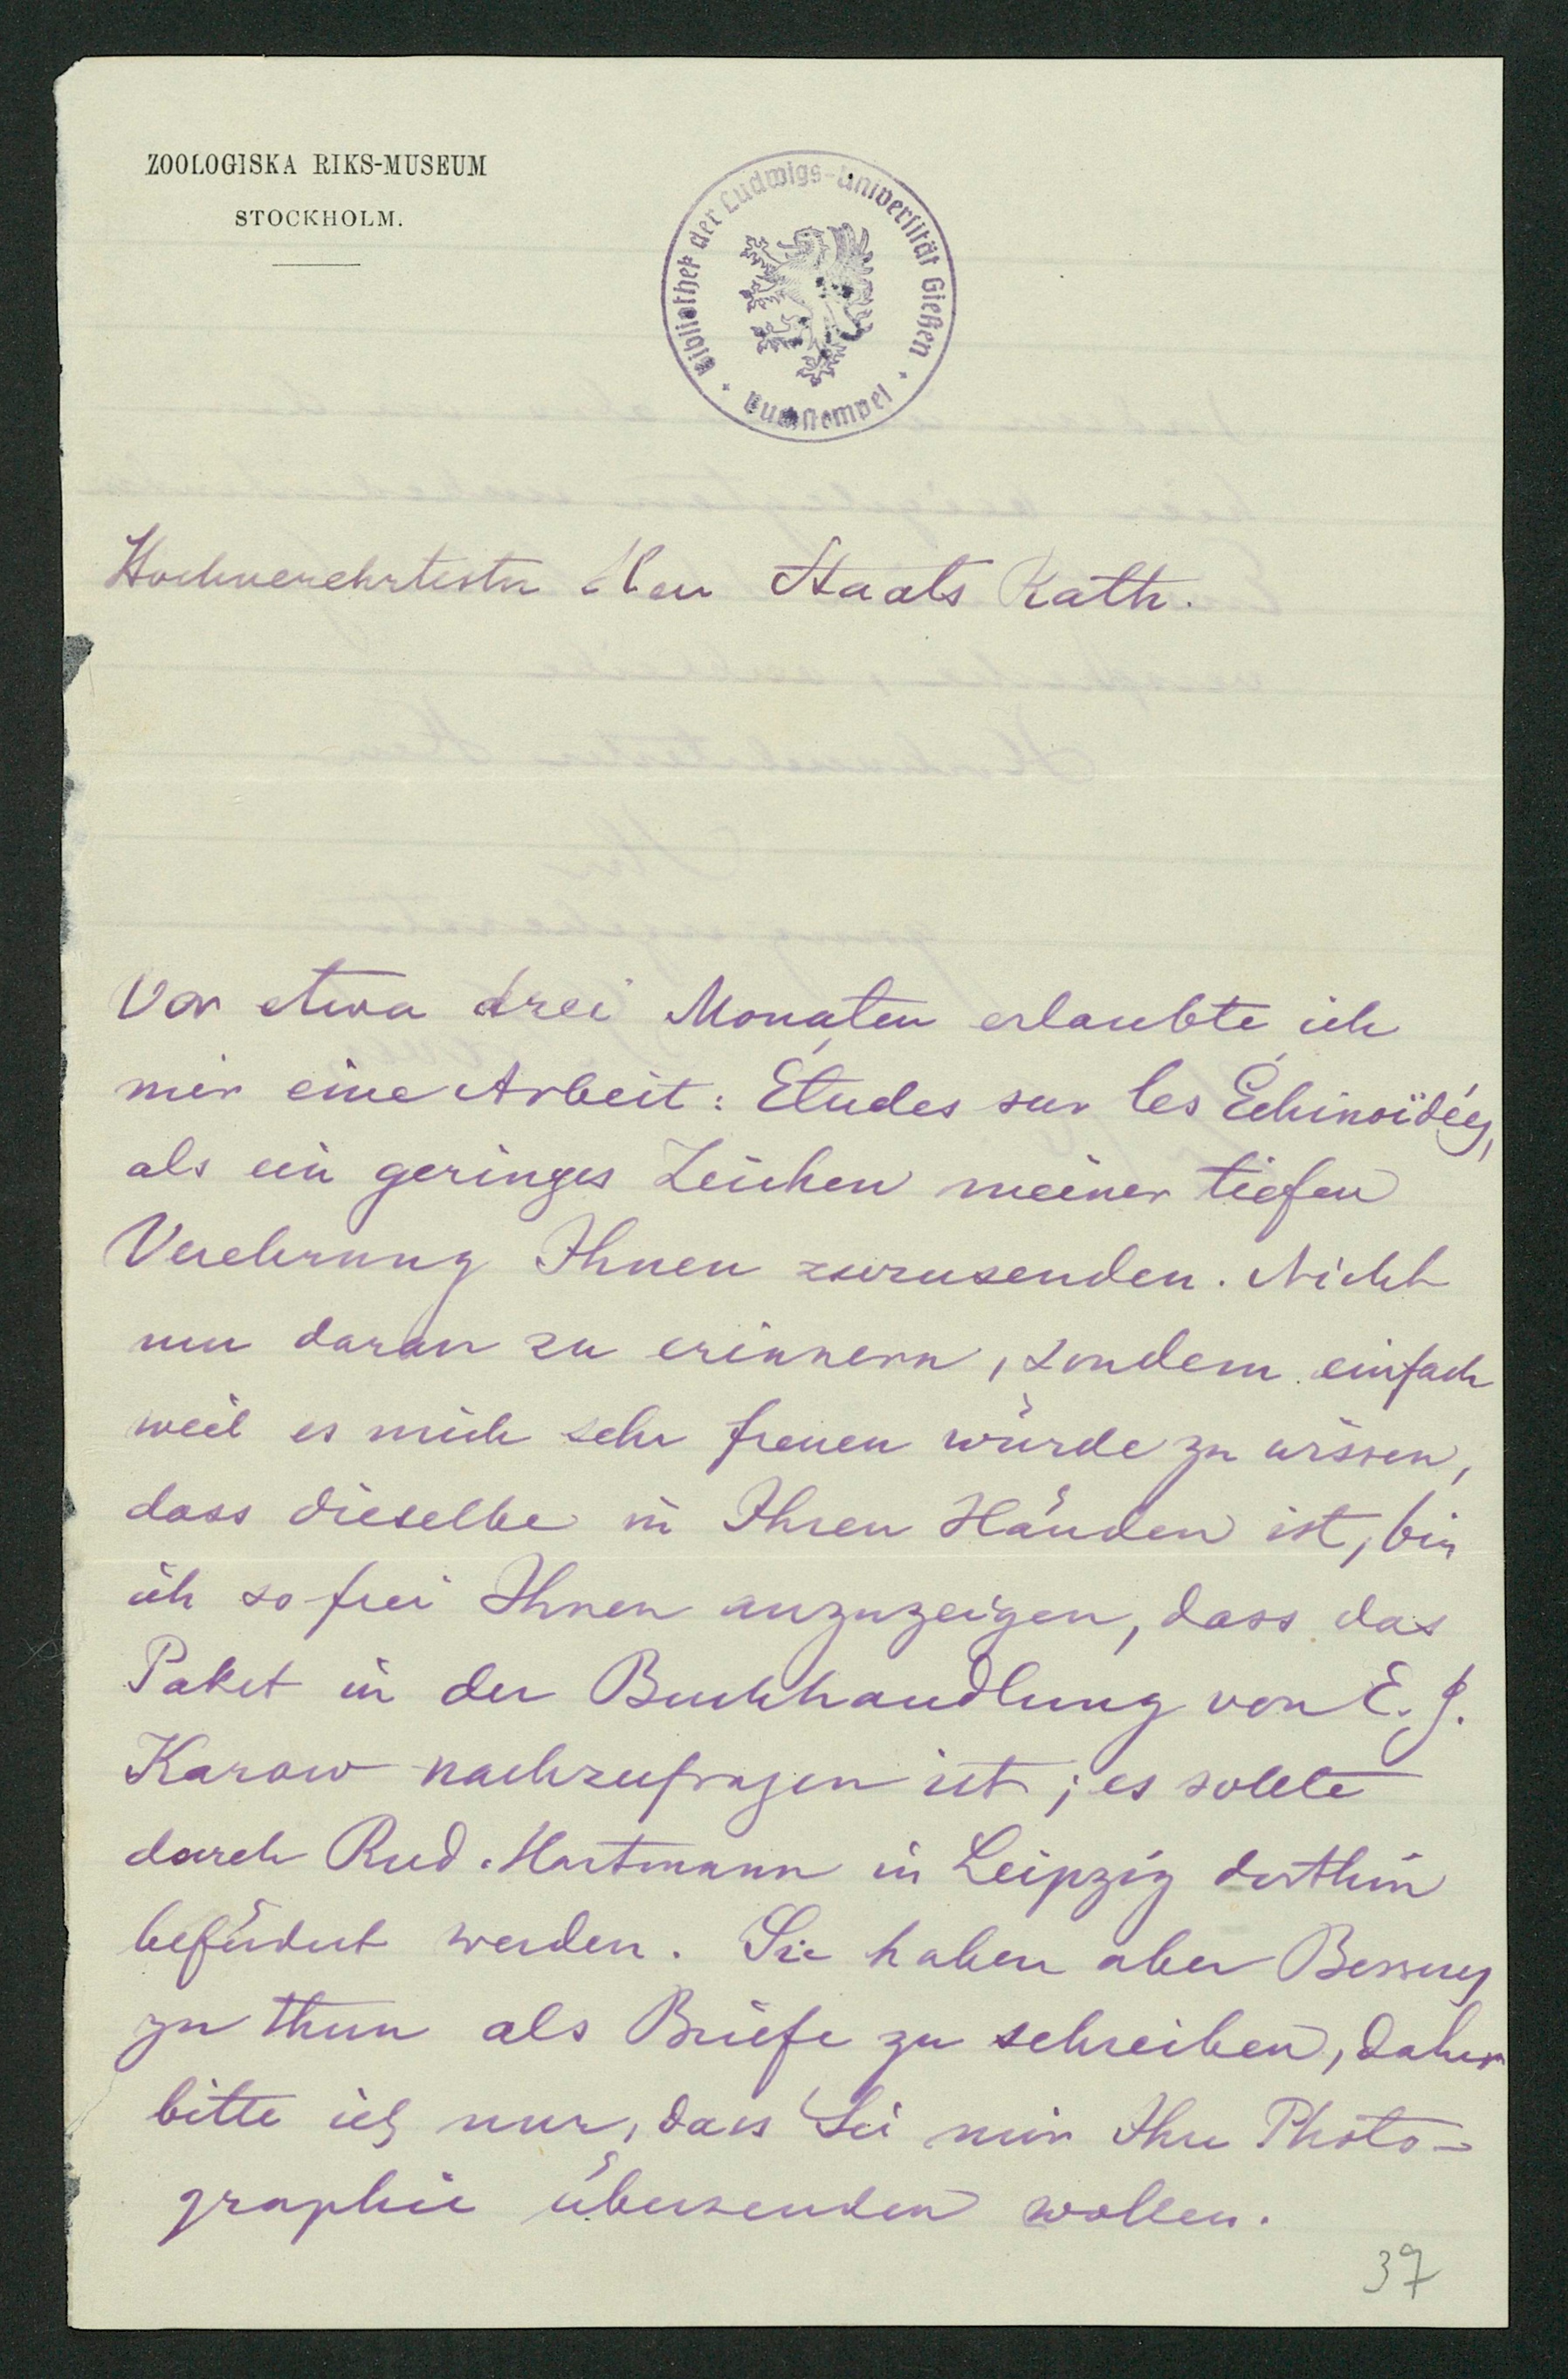 ZOOLOGISKA RIKS-MUSEUM
STOCKHOLM.
Bibliothek der Ludwigs-Universität Gießen
Hochverehrtester Herr Staats Rath.
Vor etwa drei Monaten erlaubte ich
mir eine Arbeit: Études sur les Échinoïdées,
als ein geringes Zeichen meiner tiefen
Verehrung Ihnen zuzusenden. Nicht
um daran zu erinnern, sondern einfach
weil es mich sehr freuen würde zu wissen,
dass dieselbe in Ihren Händen ist, bin
ich so frei Ihnen anzuzeigen, dass das
Paket in der Buchhandlung von E. J.
Karow nachzufragen ist; es sollte
durch Rud. Hartmann in Leipzig dorthin
befördert werden. Sie haben aber Besseres
zu thun als Briefe zu schreiben, daher
bitte ich nur, dass Sie mir Ihre Photo-
graphie übersenden wollen.
37